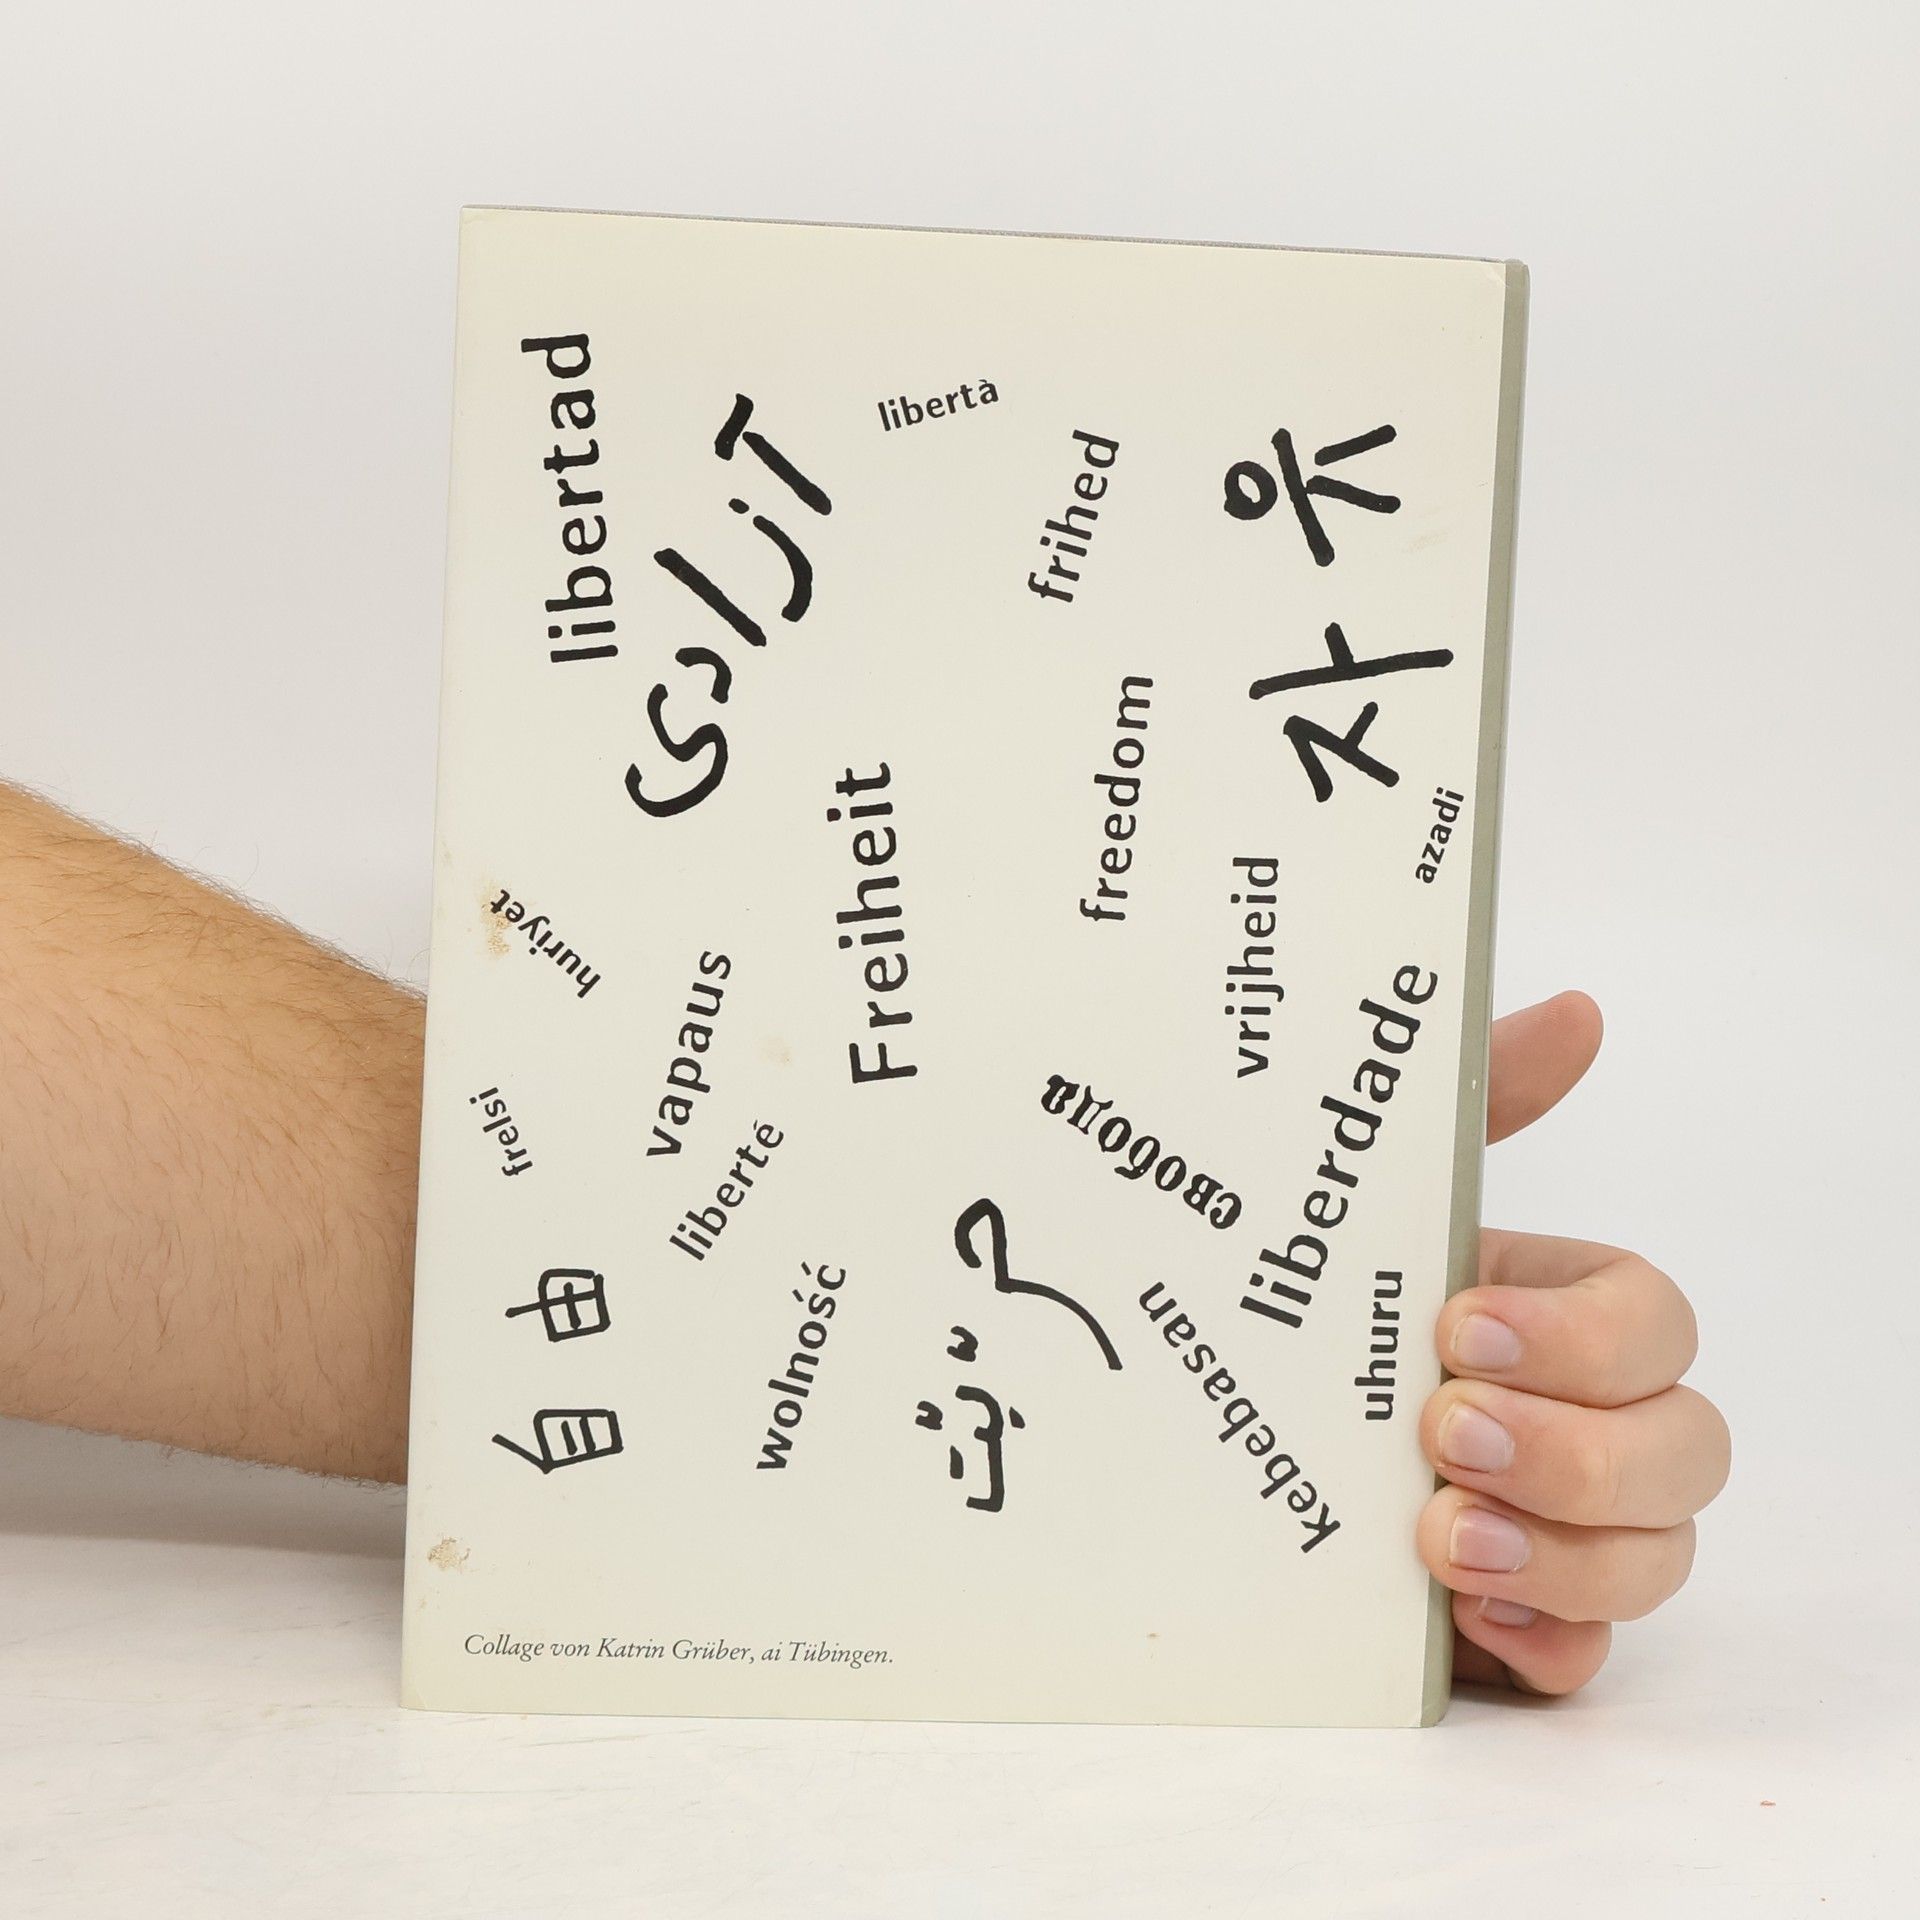 libertad
آزادی
libertà
frihed
자유
huriyet
vapaus
Freiheit
freedom
vrijheid
azadi
frelsi
liberté
свобода
liberdade
自由
wolność
حريّت
kebebasan
uhuru
Collage von Katrin Grüber, ai Tübingen.